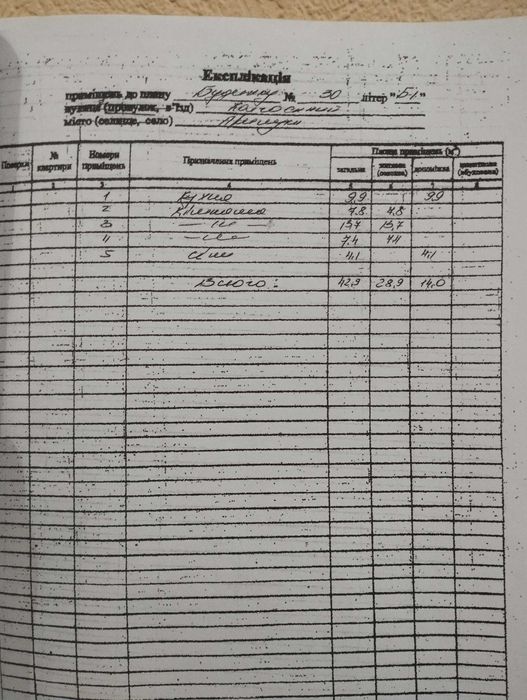 Експлікація
приміщень до плану Будинку № 30 літер "Б1"
вулиця (провулок, в'їзд)
місто (селище, село) Прилуки
Поверхи № квартири Номери приміщень Призначення приміщень Площа приміщень (м²)
загальна житлова (основна) допоміжна
1 2 3 4 5 6 7 8
1 Кухня 9,9 9,9
2 Кімната 7,8 7,8
3 — " — 13,7 13,7
4 — " — 7,4 7,4
5 Сіни 4,1 4,1
Всього: 42,9 28,9 14,0